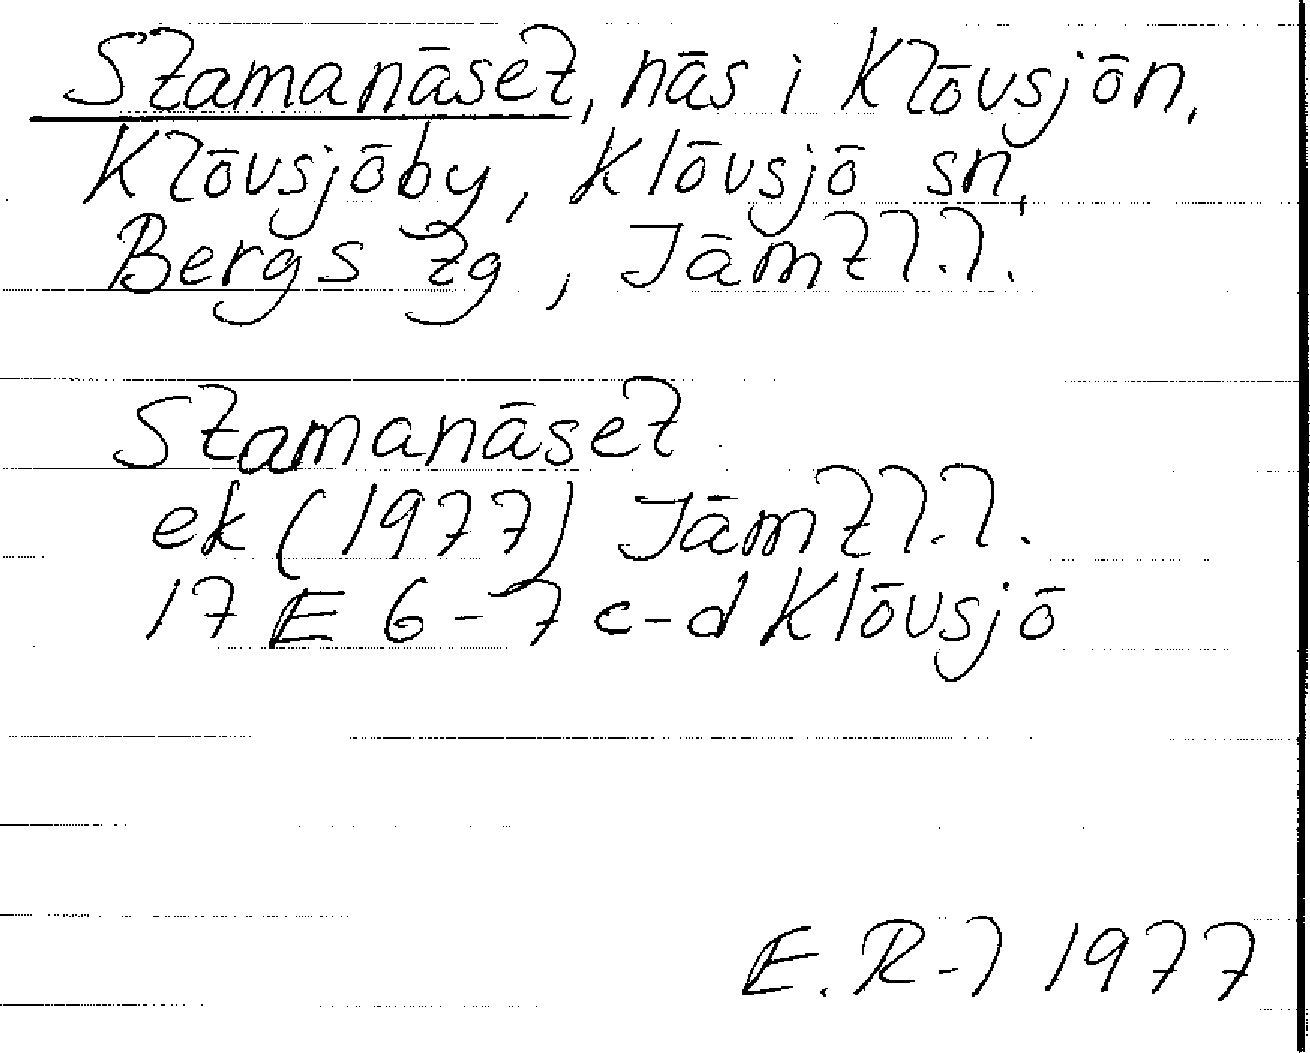 Stamanäset, näs i Klövsjön,
Klövsjöby, Klövsjö sn,
Bergs tg, Jämtl.l.
Stamanäset
ek (1977) Jämtl.l.
17 E 6-7 c-d Klövsjö
E. R-l 1977